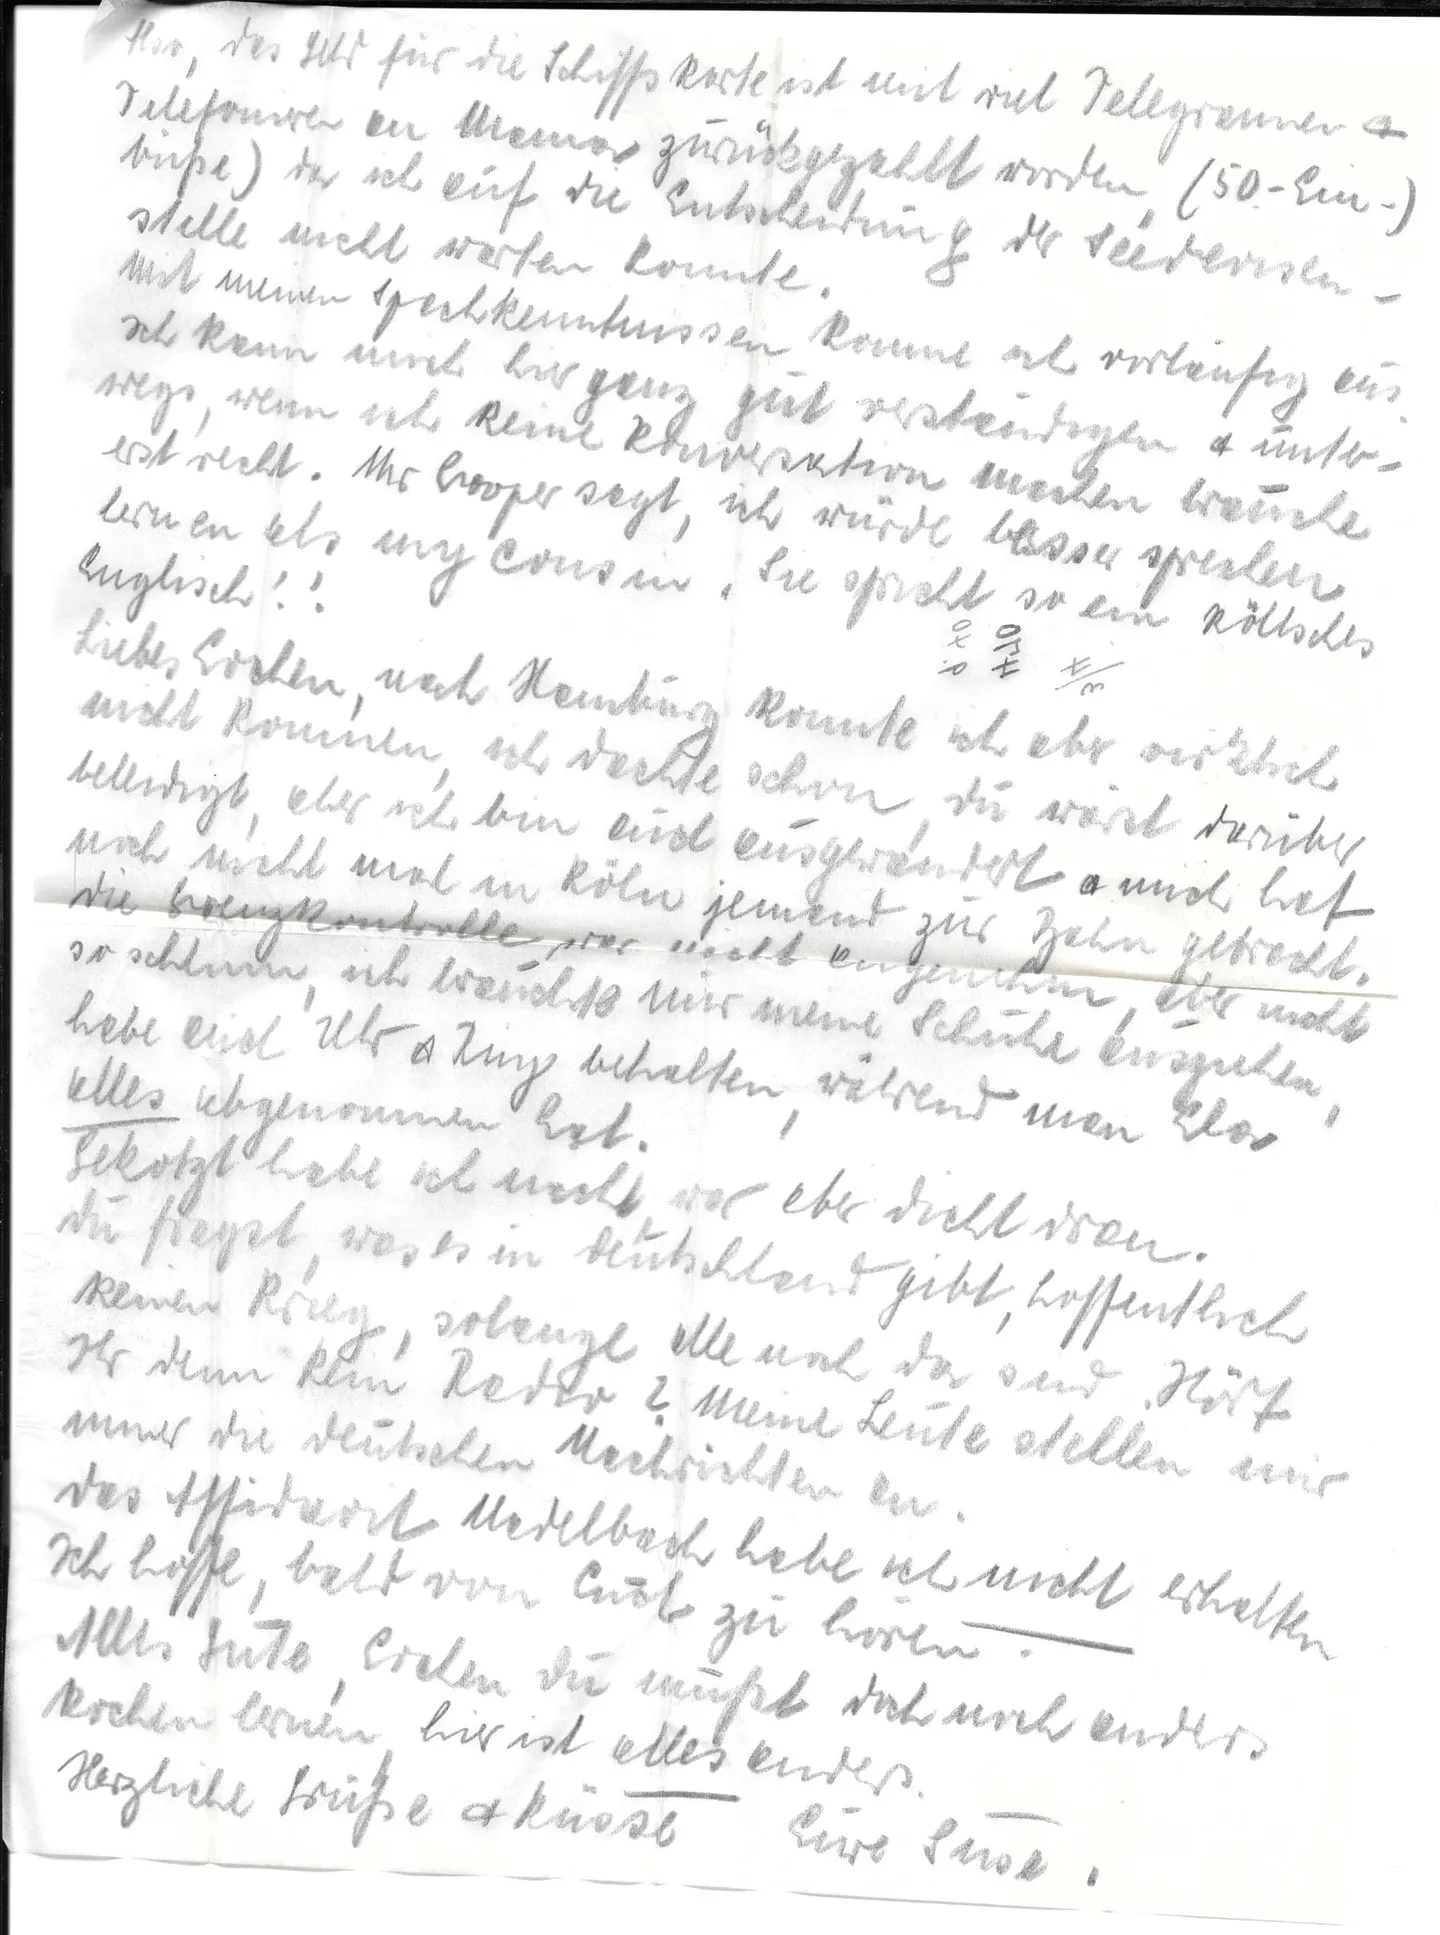 Also, das Geld für die Schiffskarte ist mit viel Telegrammen &
Telefonieren an Mama zurückgezahlt worden, (50.- Ein-)
büße) da ich auf die Entscheidung der Devisen-
stelle nicht warten konnte.
Mit meinen Spachkenntnissen komme ich vorläufig aus.
Ich kann mich hier ganz gut verständigen & unter-
wegs, wenn ich keine Konversation machen brauche
erst recht. Mr Cooper sagt, ich würde besser sprechen
lernen als my cousin. Sie spricht so ein köllsches
Englisch!!
Liebes Lochen, nach Hamburg konnte ich aber wirklich
nicht kommen, ich dachte schon, du wärst darüber
beleidigt, aber ich bin auch ausgewandert & mich hat
noch nicht mal in Köln jemand zur Bahn gebracht.
die Grenzkontrolle war nicht angenehm, aber nicht
so schlimm, ich brauchte nur meine Schuhe ausziehen,
habe auch Uhr & Ring behalten, während man
alles abgenommen hat.
Gekotzt habe ich nicht, war aber dicht dran.
du fragst, was es in Deutschland gibt, hoffentlich
keinen Krieg, solange alle noch da sind. Hört
Ihr denn kein Radio? Meine Leute stellen mir
immer die deutschen Nachrichten an.
das Affidavit Madelbach habe ich nicht erhalten
Ich hoffe, bald von Euch zu hören.
Alles Gute, Lochen du mußt doch noch anders
kochen lernen, hier ist alles anders.
Herzliche Grüße & Küsse Eure Suse.